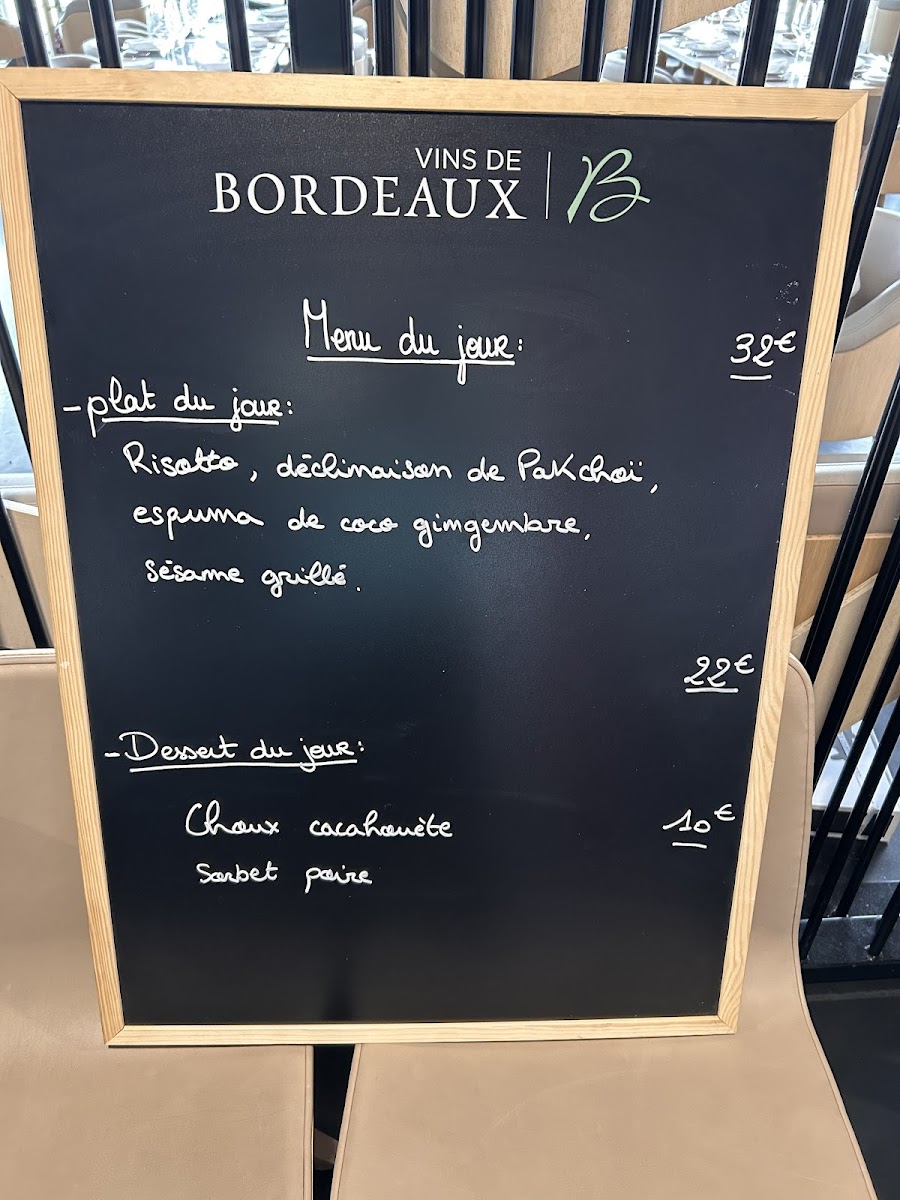 VINS DE
BORDEAUX
B
Menu du jour: 32€
- plat du jour:
Risotto, déclinaison de Pakchoï,
espuma de coco gingembre,
sésame grillé.
22€
- Dessert du jour:
Choux cacahouète 10€
Sorbet poire